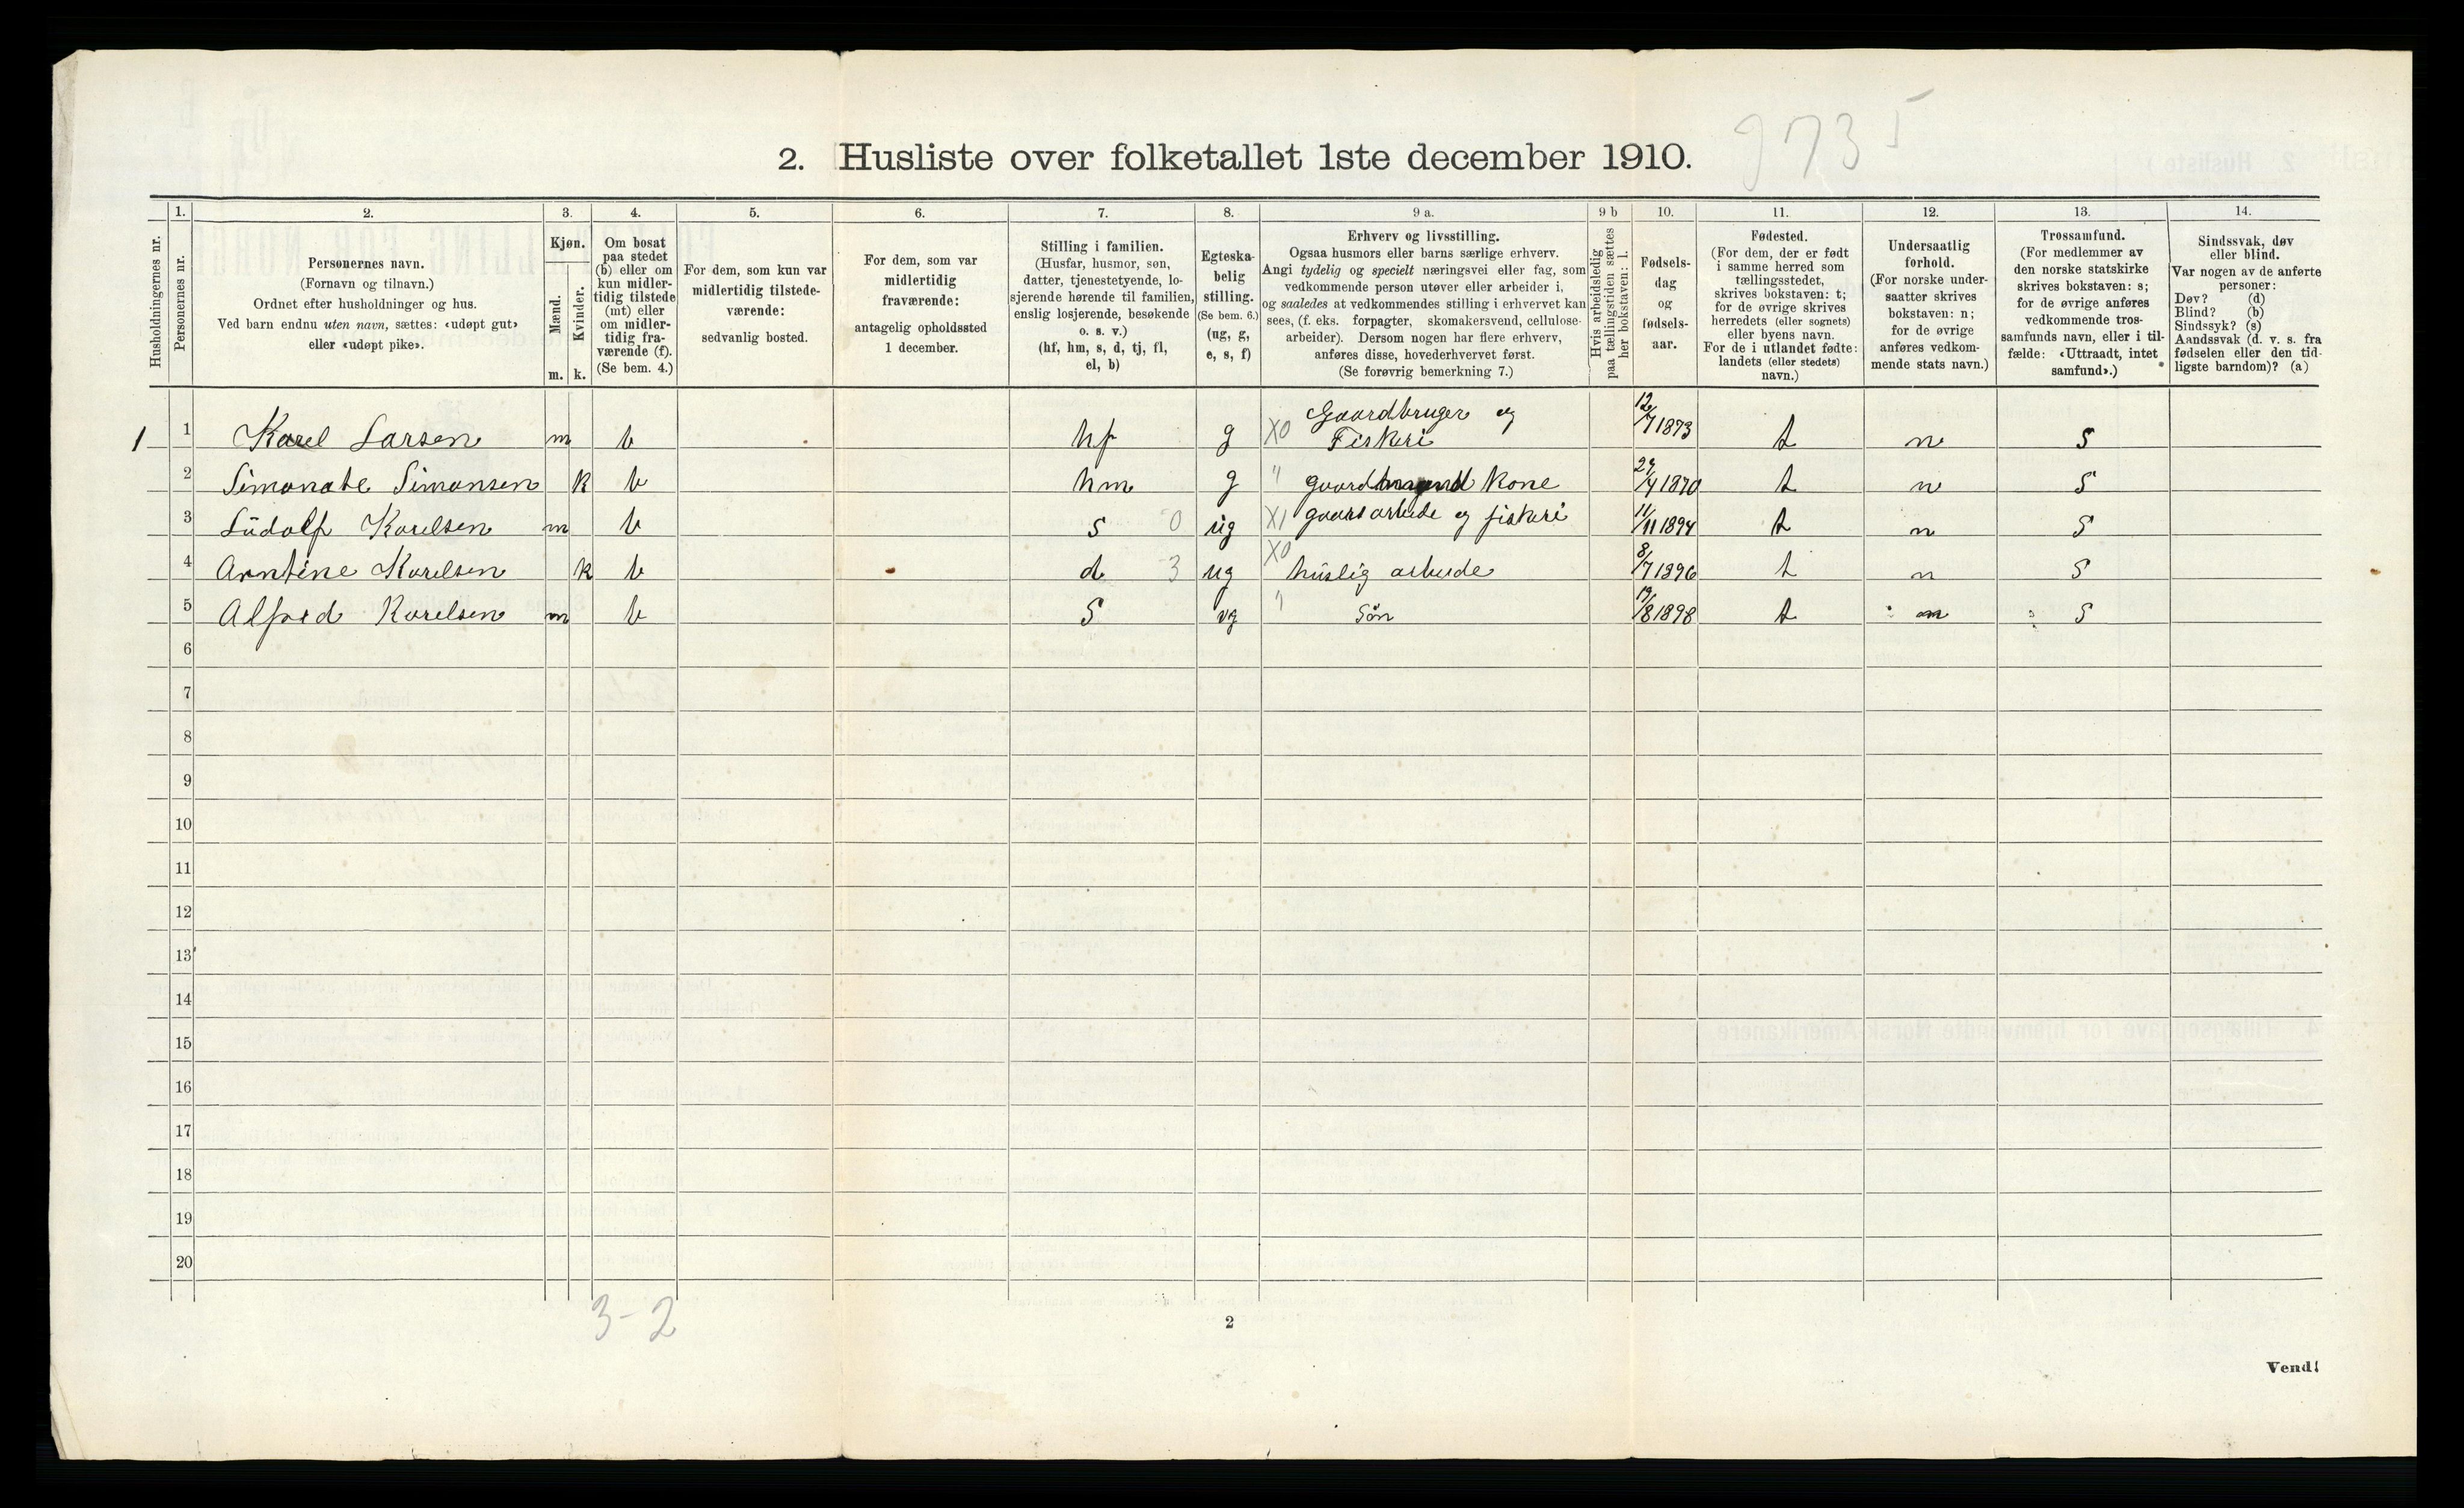 9735
2. Husliste over folketallet 1ste december 1910.
Husholdningernes nr.
1.
Personernes nr.
2.
Personernes navn.
(Fornavn og tilnavn.)
Ordnet efter husholdninger og hus.
Ved barn endnu uten navn, sættes: «udøpt gut»
eller «udøpt pike».
3.
Kjøn.
Mænd.
Kvinder.
m. k.
4.
Om bosat
paa stedet
(b) eller om
kun midler-
tidig tilstede
(mt) eller
om midler-
tidig fra-
værende (f).
(Se bem. 4.)
5.
For dem, som kun var
midlertidig tilstede-
værende:
sedvanlig bosted.
6.
For dem, som var
midlertidig
fraværende:
antagelig opholdssted
1 december.
7.
Stilling i familien.
(Husfar, husmor, søn,
datter, tjenestetyende, lo-
sjerende hørende til familien,
enslig losjerende, besøkende
o. s. v.)
(hf, hm, s, d, tj, fl,
el, b)
8.
Egteska-
belig
stilling.
(Se bem. 6.)
(ug, g,
e, s, f)
9 a.
Erhverv og livsstilling.
Ogsaa husmors eller barns særlige erhverv.
Angi tydelig og specielt næringsvei eller fag, som
vedkommende person utøver eller arbeider i,
og saaledes at vedkommendes stilling i erhvervet kan
sees, (f. eks. forpagter, skomakersvend, cellulose-
arbeider). Dersom nogen har flere erhverv,
anføres disse, hovederhvervet først.
(Se forøvrig bemerkning 7.)
9 b
Hvis arbeidsledig
paa tællingstiden sættes
her bokstaven: l.
10.
Fødsels-
dag
og
fødsels-
aar.
11.
Fødested.
(For dem, der er født
i samme herred som
tællingsstedet,
skrives bokstaven: t;
for de øvrige skrives
herredets (eller sognets)
eller byens navn.
For de i utlandet fødte:
landets (eller stedets)
navn.)
12.
Undersaatlig
forhold.
(For norske under-
saatter skrives
bokstaven: n;
for de øvrige
anføres vedkom-
mende stats navn.)
13.
Trossamfund.
(For medlemmer av
den norske statskirke
skrives bokstaven: s;
for de øvrige anføres
vedkommende tros-
samfunds navn, eller i til-
fælde: «Uttraadt, intet
samfund».)
14.
Sindssvak, døv
eller blind.
Var nogen av de anførte
personer:
Døv? (d)
Blind? (b)
Sindssyk? (s)
Aandssvak (d. v. s. fra
fødselen eller den tid-
ligste barndom)? (a)
1 1 Karel Larsen m b hf g X0 Gaardbruger og Fiskeri 12/7 1873 t n S
2 Simonate Simonsen k b hm g " gaardmand Kone 24/4 1870 t n S
3 Lüdolf Karelsen m b s 0 ug X1 gaarsarbeide og fiskeri 11/11 1894 t n S
4 Arntine Karelsen k b d 3 ug X0 huslig arbeide 8/7 1896 t n S
5 Alfred Karelsen m b S ug " Sön 19/8 1898 t n S
6
7
8
9
10
11
12
13
14
15
16
17
18
19
20
3-2
2
Vend!